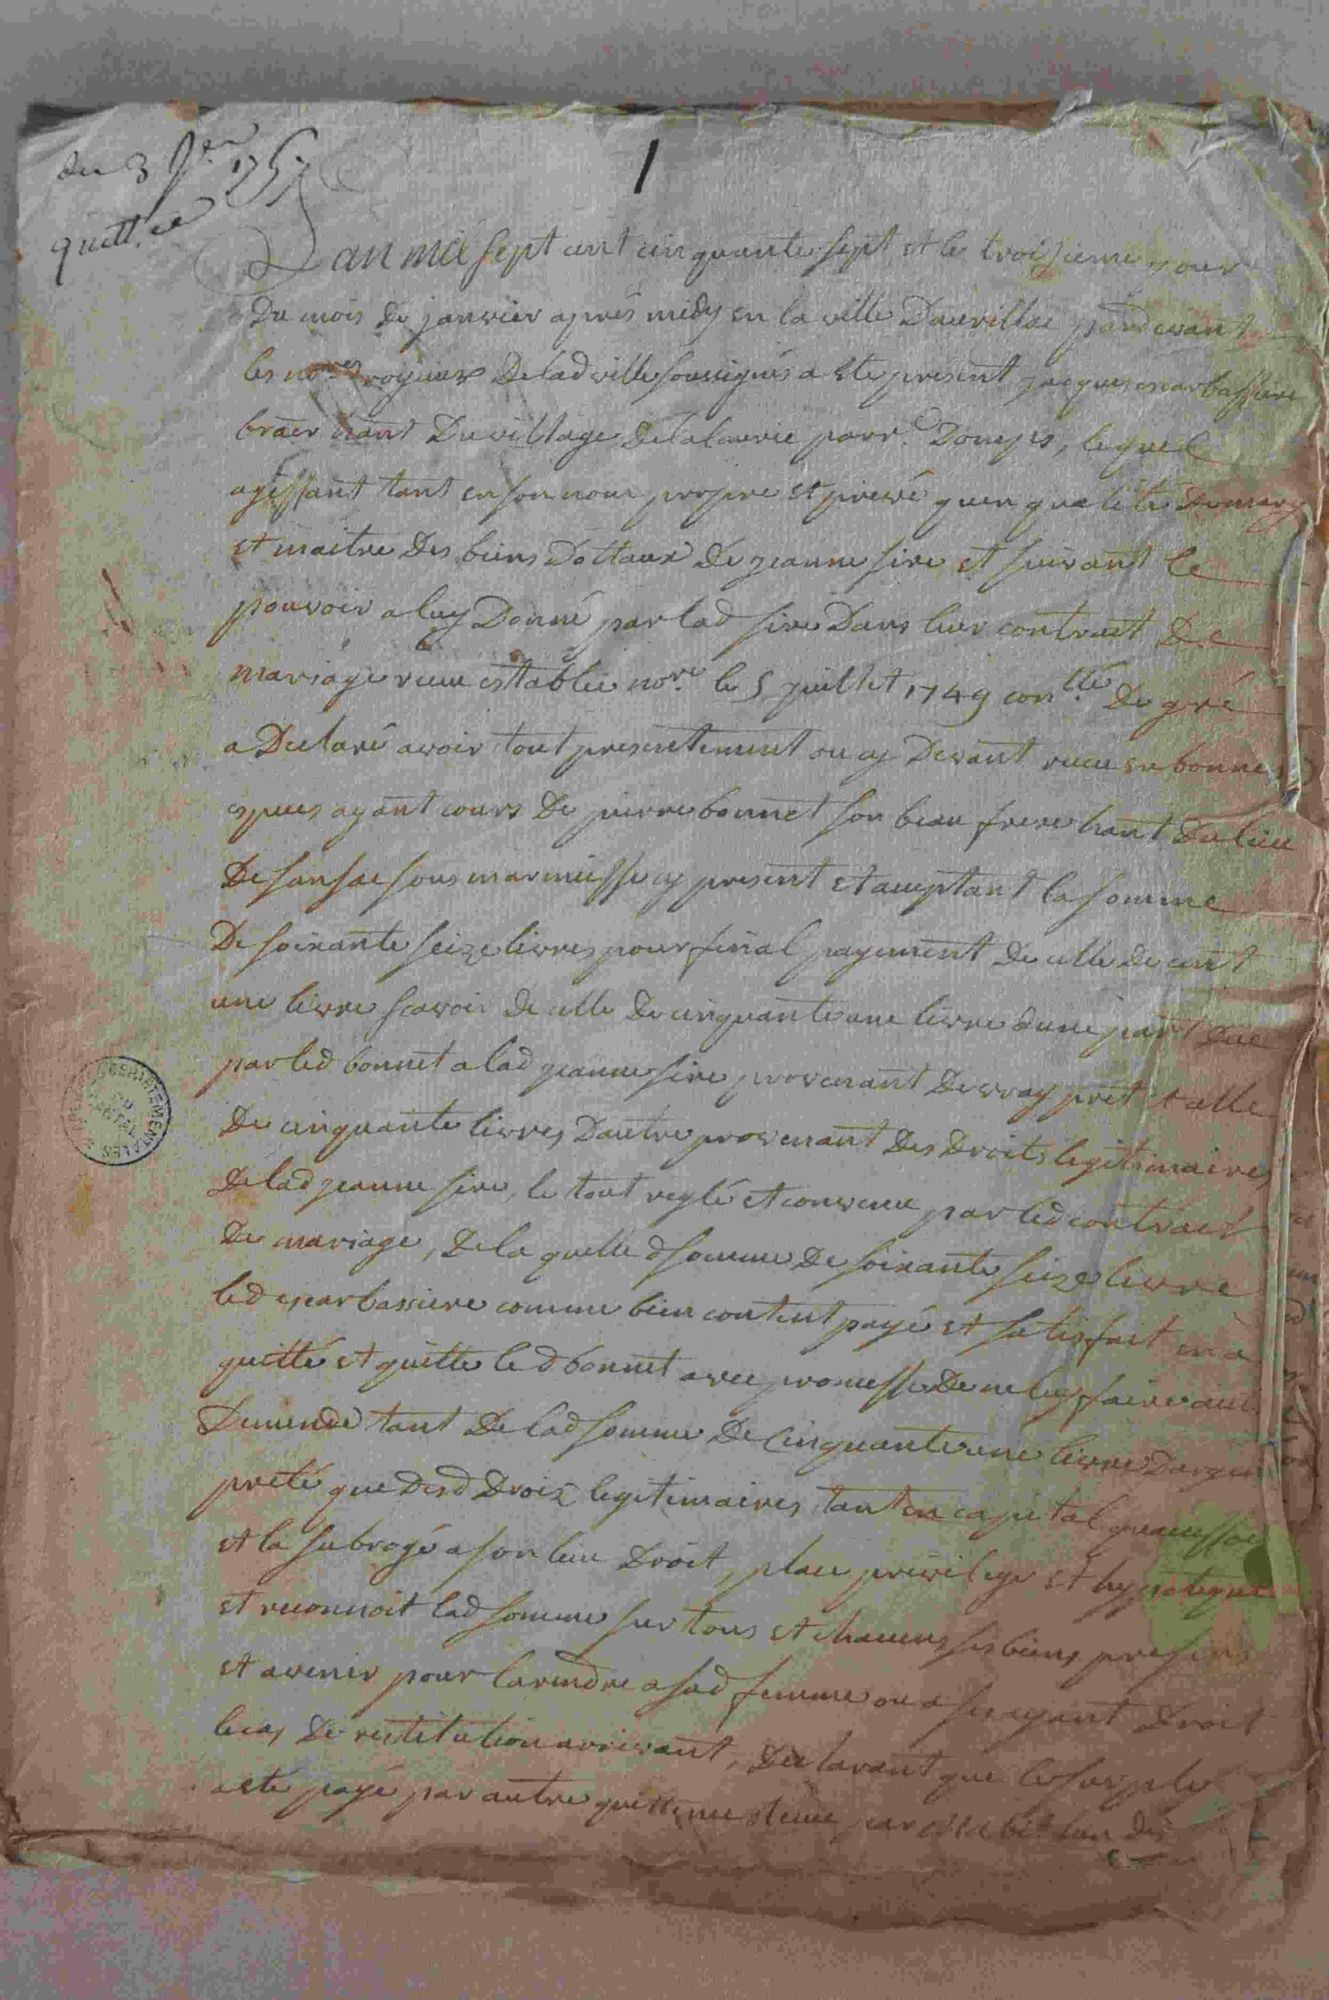 du 3 Jer 1757
quittce
1
Lan mil sept cent cinquante sept et le troizieme jour
du mois de janvier apres midy en la ville Daurillac pardevant
les nores royaux de lad ville soussignés a ete present jacques escarbassiere
hant du village de parr. Douyes, lequel
agissant tant en son nom propre et privé quen qualité de mary
et maitre des biens dottaux de jeanne sire et suivant le
pouvoir a luy donné par lad sire dans leur contract de
mariage receu establie nore le 5 juillet 1749 conllé de gré
a declaré avoir tout presentement ou cy devant receu en bonnes
especes ayant cours de pierre bonnet son beau frere hant du lieu
de sansac sous marmiesse cy present et acceptant la somme
de soixante seize livres pour final payement de celle de cent
une livre scavoir de celle de cinquante une livre dune part due
par led bonnet a lad jeanne sire provenant de vray pret et celle
de cinquante livres dautre provenant des droits legitimaires
de lad jeanne sire, le tout reglé et convenu par led contract
de mariage, de la quelle d somme de soixante seize livre
led escarbassiere comme bien content payé et satisfait en a
quitté et quitte led bonnet avec promesse de ne luy faire aucu
demende tant de lad somme de cinquante une livre dargen
preté que desd droiz legitimaires tant en capital quaccessoi
et la subrogé a son lieu droit, place privilege et hypoteque
et reconnoit lad somme sur tous et chacuns ses biens presens
et avenir pour la rendre a sad femme ou a ses ayant droit
le cas de restitution arrivant, declarant que le surplus
a eté payé par autre quittance receue par